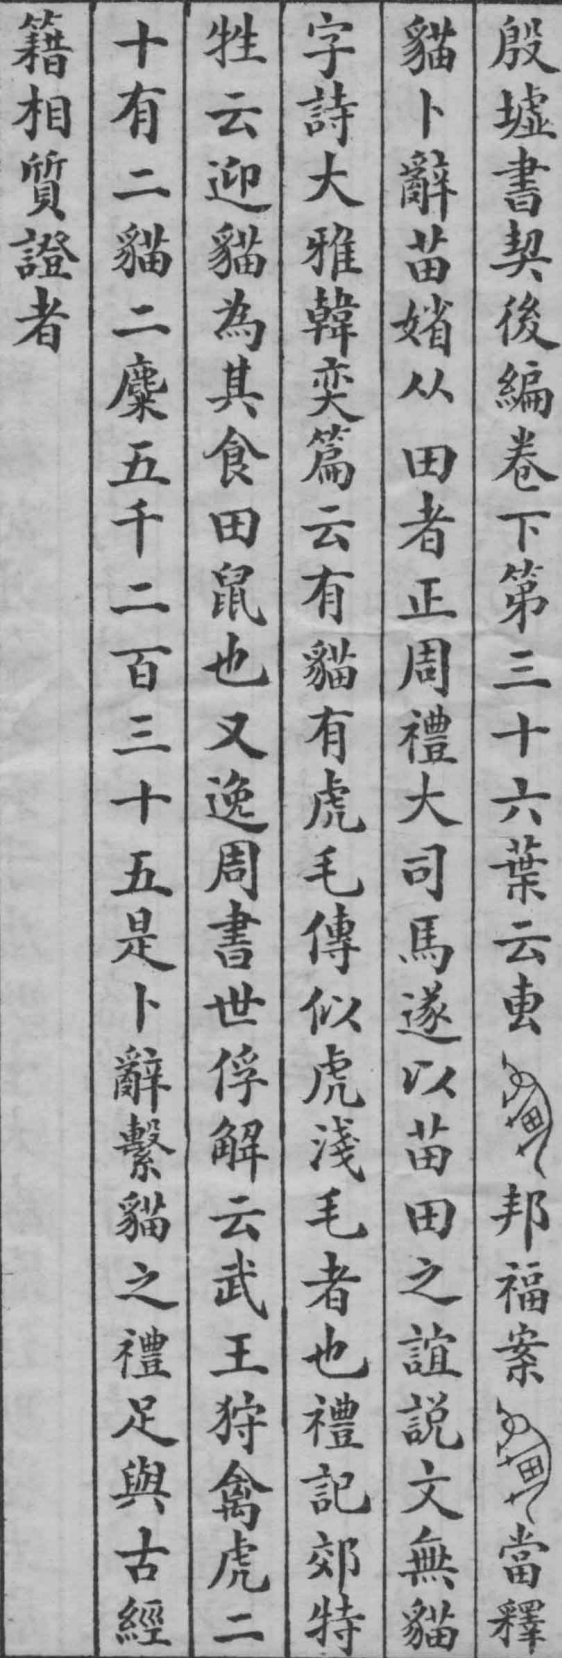 殷墟書契後編卷下第三十六葉云叀邦福案當釋
貓卜辭苗媘从田者正周禮大司馬遂以苗田之誼説文無貓
字詩大雅韓奕篇云有貓有虎毛傳似虎淺毛者也禮記郊特
牲云迎貓為其食田鼠也又逸周書世俘解云武王狩禽虎二
十有二貓二麋五千二百三十五是卜辭繫貓之禮足與古經
籍相質證者